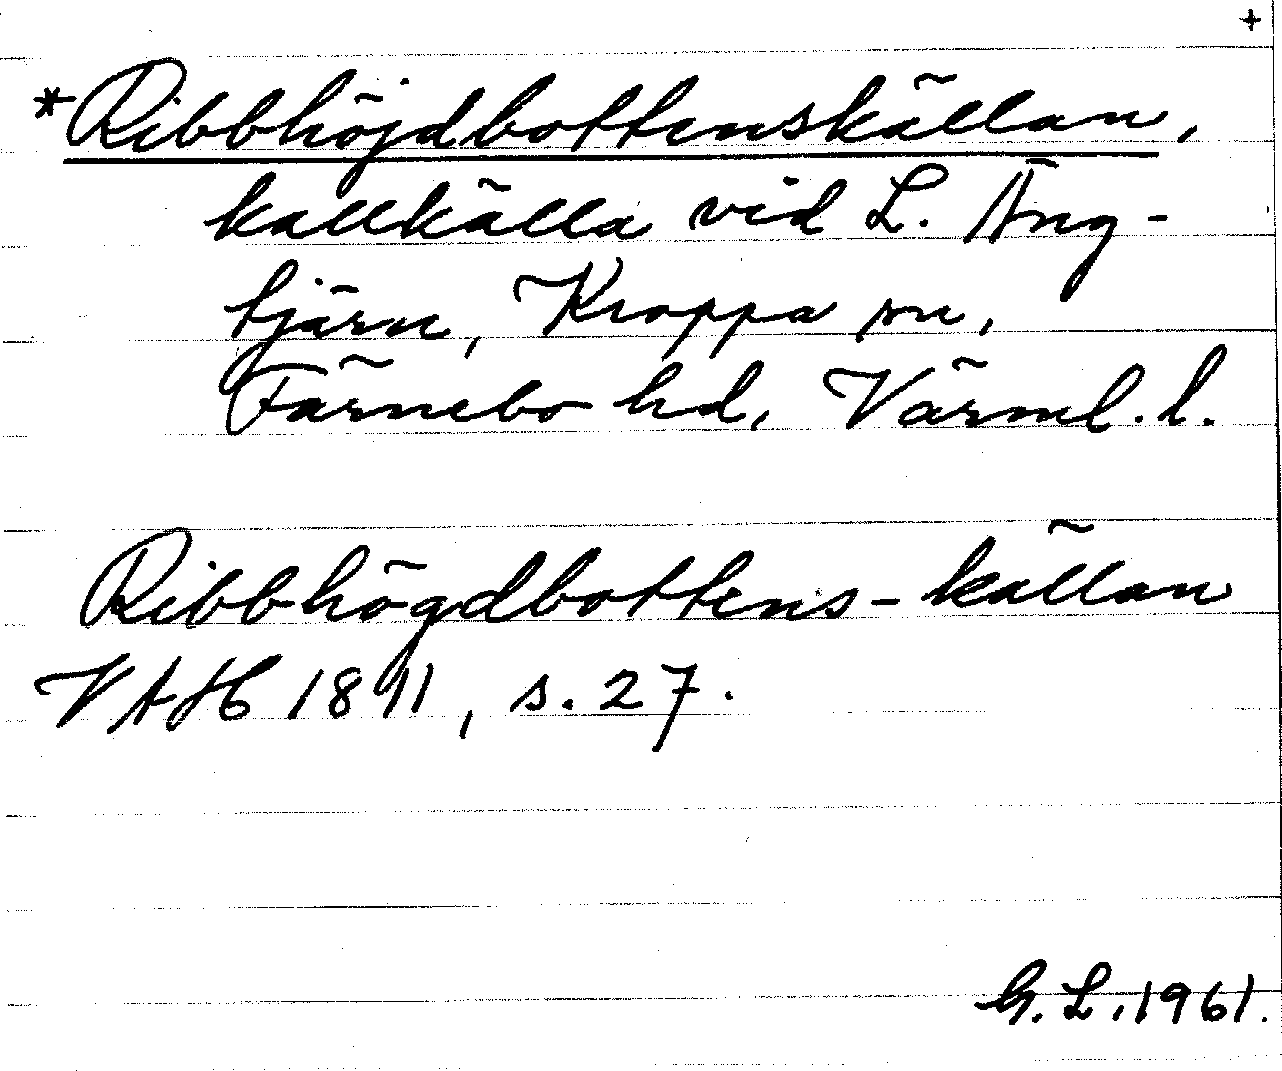 +
*Ribbhöjdbottenskällan,
kallkälla vid L. Äng-
tjärn, Kroppa sn,
Färnebo hd, Värml. l.
Ribbhögdbottens-källan
VAH 1891, s. 27.
G. L. 1961.